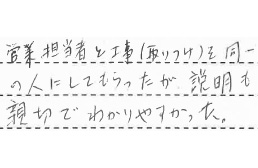 営業担当者と工事(取りつけ)を同一
の人にしてもらったが、説明も
親切でわかりやすかった。